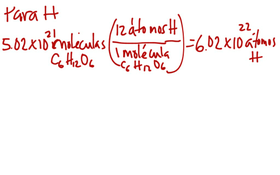 Para H
5.02 x 10^21 moléculas C6H12O6 (12 átomos H / 1 molécula C6H12O6) = 6.02 x 10^22 átomos H